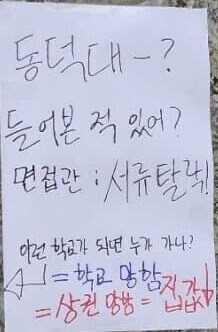 동덕대-?
들어본 적 있어?
면접관 : 서류탈락!
이런 학교가 되면 누가 가나?
= 학교 망함
= 상권 망함 = 집값↓